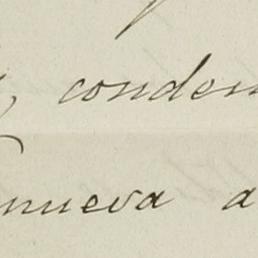 , conden
nueva a